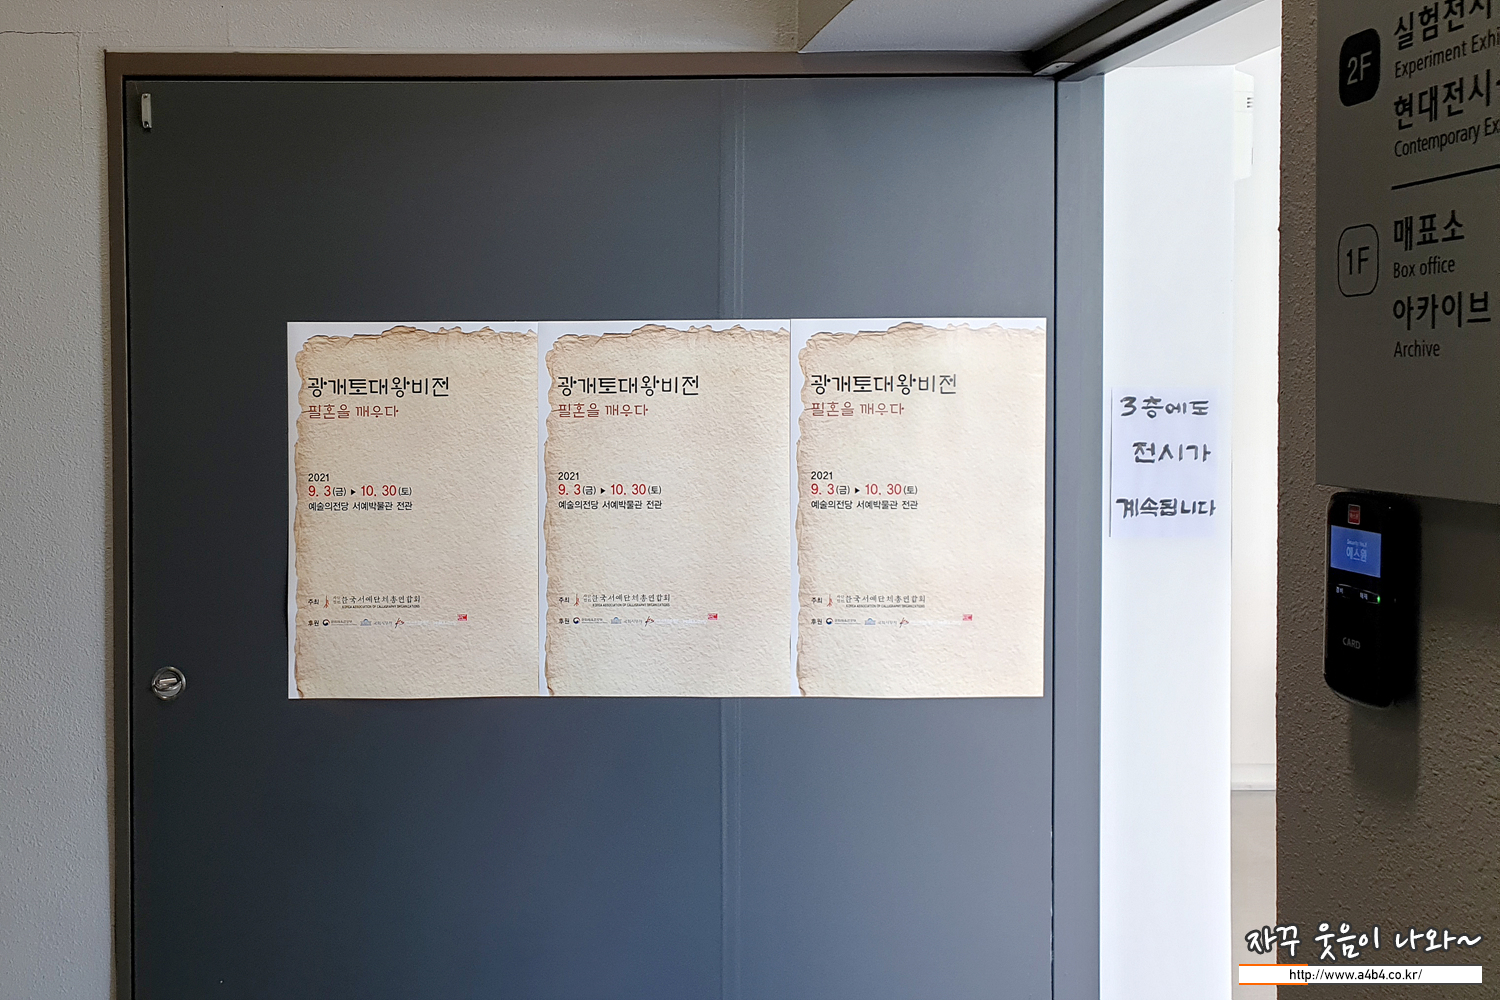 광개토대왕비전
필혼을 깨우다
2021
9. 3(금) ▶ 10. 30(토)
예술의전당 서예박물관 전관
주최 한국서예단체총연합회
KOREA ASSOCIATION OF CALLIGRAPHY ORGANIZATIONS
후원
광개토대왕비전
필혼을 깨우다
2021
9. 3(금) ▶ 10. 30(토)
예술의전당 서예박물관 전관
주최 한국서예단체총연합회
KOREA ASSOCIATION OF CALLIGRAPHY ORGANIZATIONS
후원
광개토대왕비전
필혼을 깨우다
2021
9. 3(금) ▶ 10. 30(토)
예술의전당 서예박물관 전관
주최 한국서예단체총연합회
KOREA ASSOCIATION OF CALLIGRAPHY ORGANIZATIONS
후원
3층에도
전시가
계속됩니다
2F
실험전시
Experiment Exhi
현대전시
Contemporary Ex
1F
매표소
Box office
아카이브
Archive
에스원
CARD
자꾸 웃음이 나와~
http://www.a4b4.co.kr/